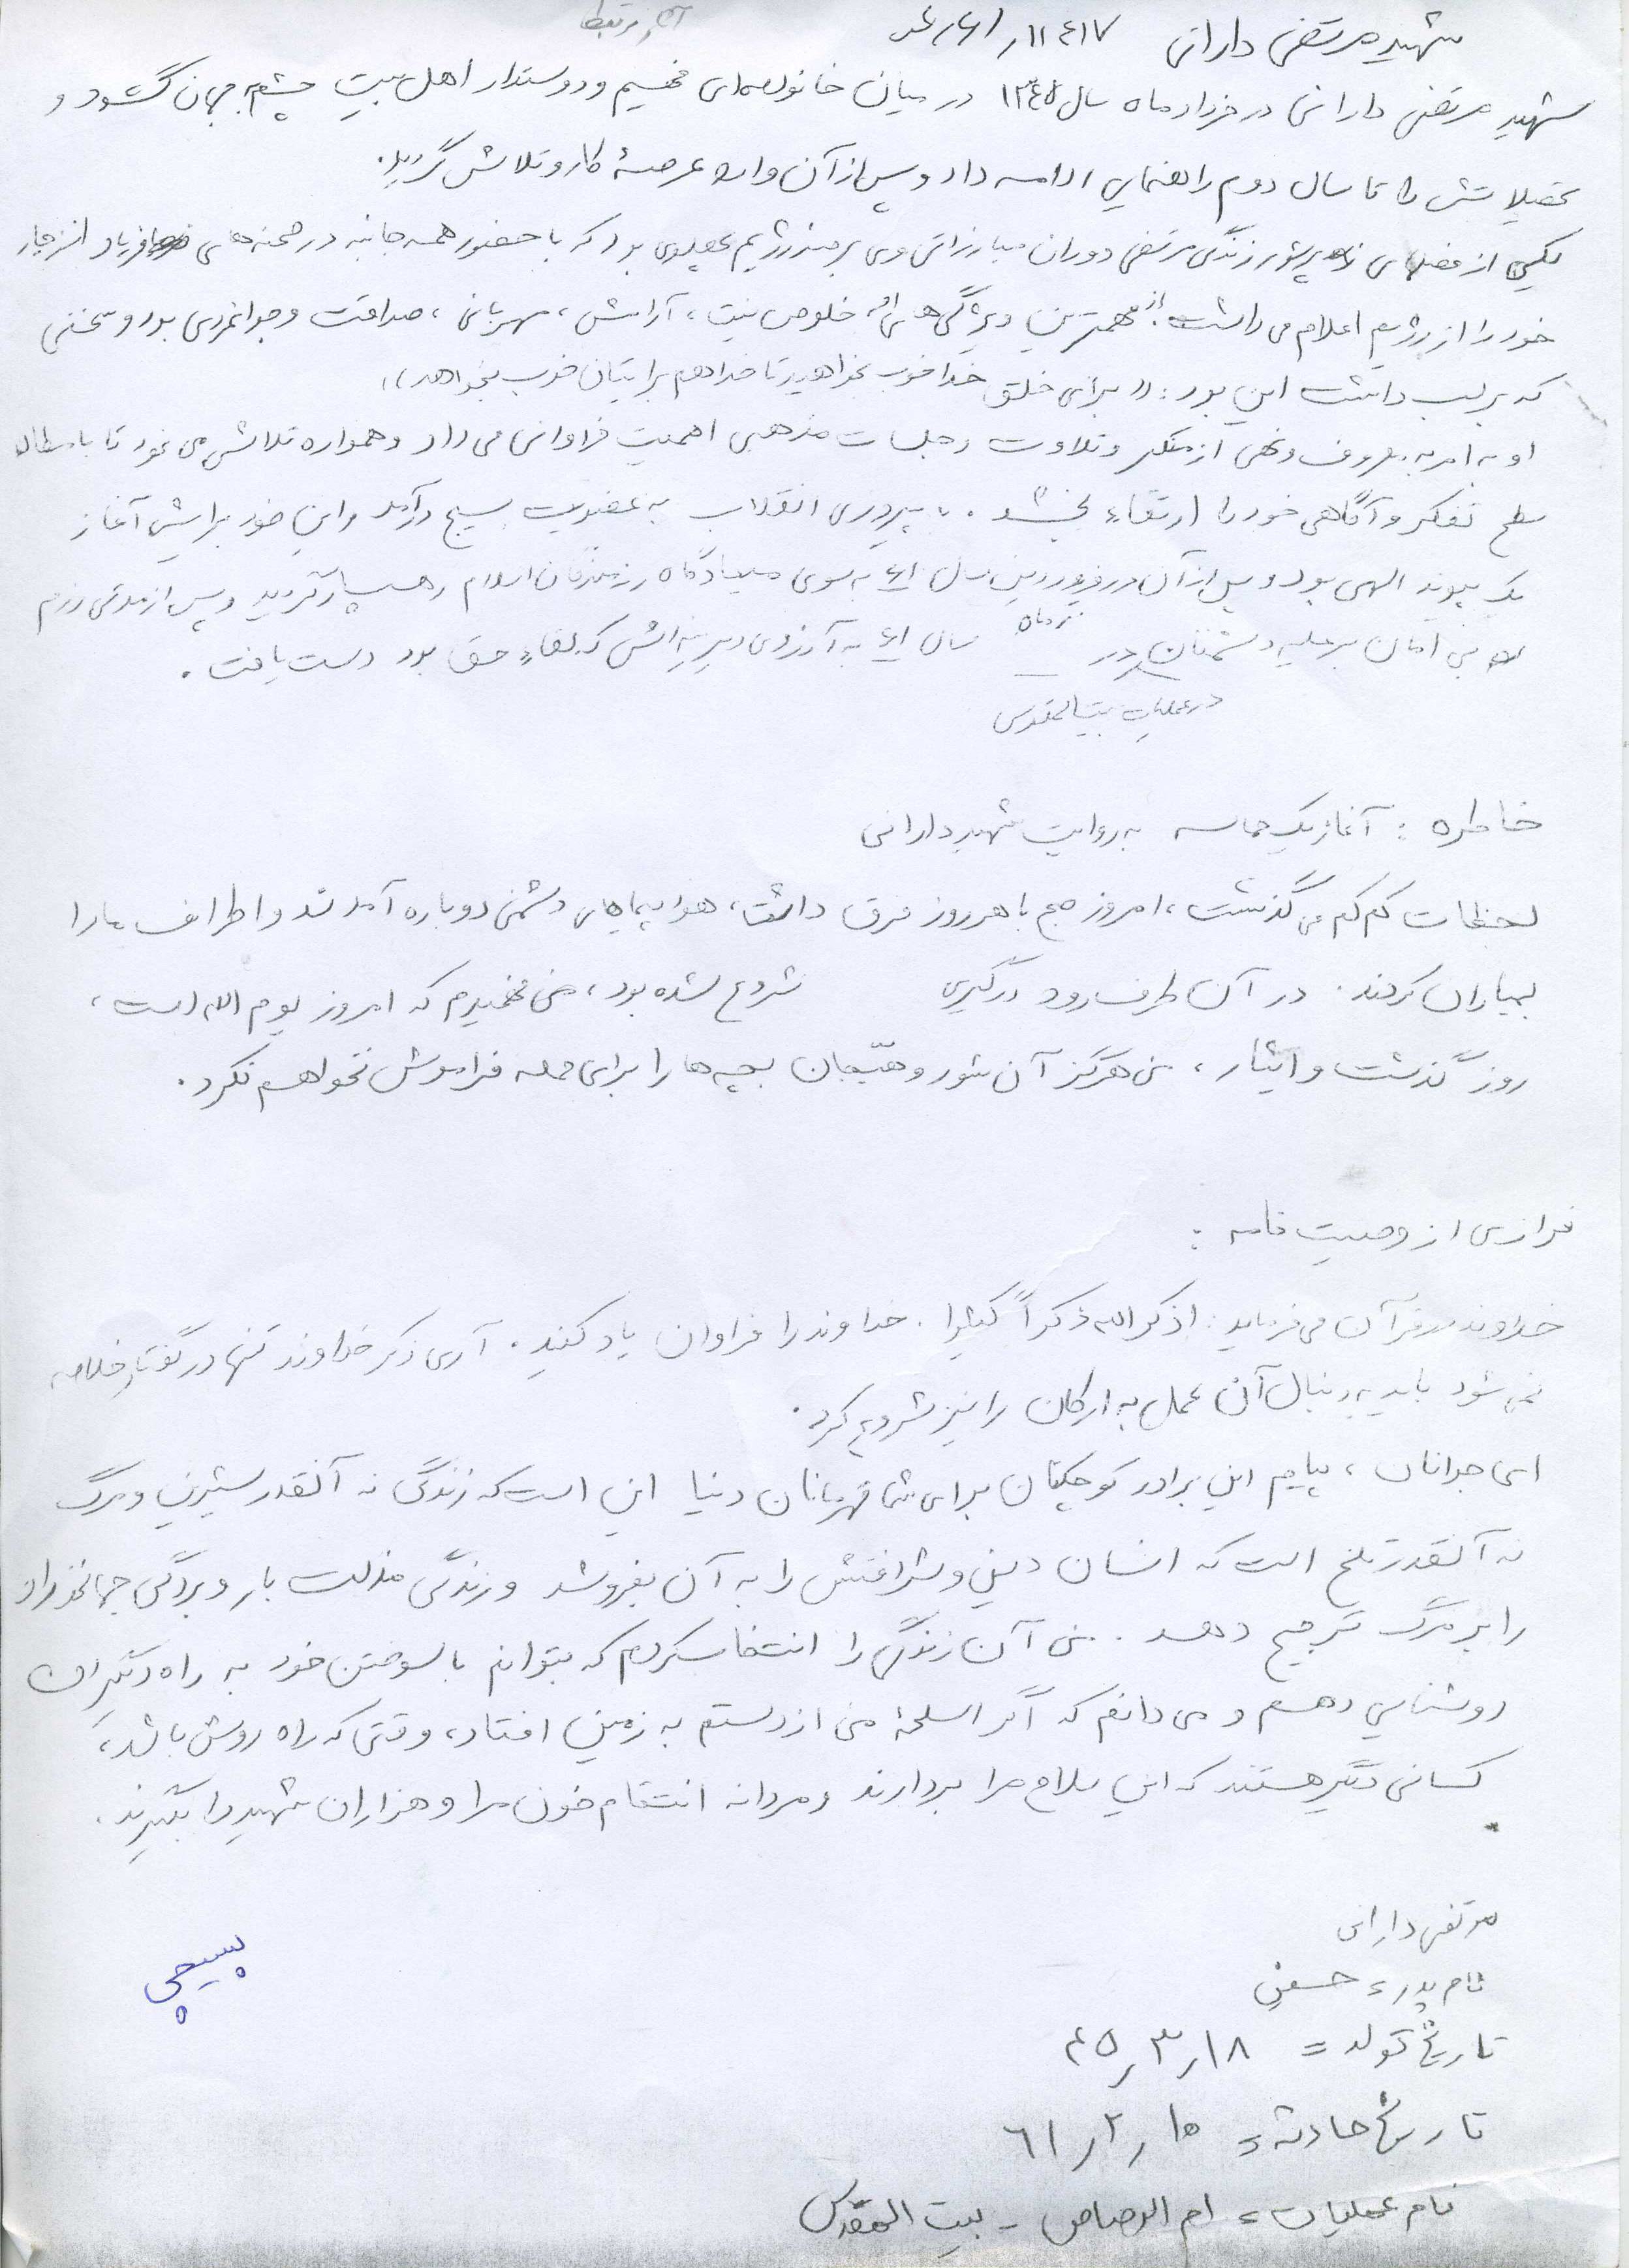 شهید مرتضی دارانی ۱۱٤۱۷
شهید مرتضی دارانی در خرداد ماه سال ۱۳٤۵ در میان خانواده‌ای فهیم و دوستدار اهل بیت چشم بجهان گشود و
تحصیلاتش را تا سال دوم راهنمایی ادامه داد و پس از آن وارد عرصهٔ کار و تلاش گردید.
یکی از فصلهای پرشور زندگی مرتضی دوران مبارزاتی وی بر ضد رژیم پهلوی بود که با حضور همه جانبه در صحنه‌های فریاد انزجار
خود را از رژیم اعلام می داشت. از مهمترین ویژگی‌های او خلوص نیت، آرامش، مهربانی، صداقت و جوانمردی بود و سخنی
که بر لب داشت این بود: «برای خلق خدا خوب بخواهید تا خدا هم برایتان خوب بخواهد»
او به امر به معروف و نهی از منکر و تلاوت و جلسات مذهبی اهمیت فراوانی می داد و همواره تلاش می نمود تا با مطالعه
سطح تفکر و آگاهی خود را ارتقاء بخشد. با پیروزی انقلاب به عضویت بسیج درآمد و این خود برایش آغاز
یک پیوند الهی بود و پس از آن در فروردین سال ٦۱ به سوی میعادگاه رزمندگان اسلام رهسپار گردید و پس از مدتی رزم
بی امان بر علیه دشمنان در سال ٦۱ به آرزوی دیرینه‌اش که لقاء حق بود دست یافت.
در عملیات بیت المقدس
خاطره: آغاز یک حماسه به روایت شهید دارانی
لحظات کم کم می گذشت، امروز صبح با هر روز فرق داشت، هواپیماهای دشمن دوباره آمدند و اطراف ما را
بمباران کردند. در آن طرف رود درگیری شروع شده بود، من فهمیدم که امروز یوم الله است،
روز گذشت و ایثار، من هرگز آن شور و هیّجان بچه‌ها را برای حمله فراموش نخواهم نکرد.
فرازی از وصیت نامه:
خداوند در قرآن می فرماید: اذکر الله ذکراً کثیرا. خداوند را فراوان یاد کنید. آری ذکر خداوند تنها در گفتار خلاصه
نمی شود باید به دنبال آن عمل به ارکان را نیز شروع کرد.
ای جوانان، پیام این برادر کوچکتان برای شما قهرمانان دنیا این است که زندگی نه آنقدر شیرین و مرگ
نه آنقدر تلخ است که انسان دین و شرافتش را به آن بفروشد و زندگی مذلت بار و بردگی جهانخواران
را بر مرگ ترجیح دهد. من آن زندگی را انتخاب کردم که بتوانم با سوختن خود به راه دیگران
روشنایی دهم و می دانم که اگر اسلحهٔ من از دستم به زمین افتاد، وقتی که راه روشن باشد،
کسانی دیگر هستند که این سلاح مرا بردارند و مردانه انتقام خون مرا و هزاران شهید را بگیرند.
مرتضی دارانی
نام پدر = حسین
بسیجی
تاریخ تولد = ۱۸ر۳ر٤۵
تاریخ حادثه = ۱۰ر۲ر٦۱
نام عملیات = ام الرصاص - بیت المقدس